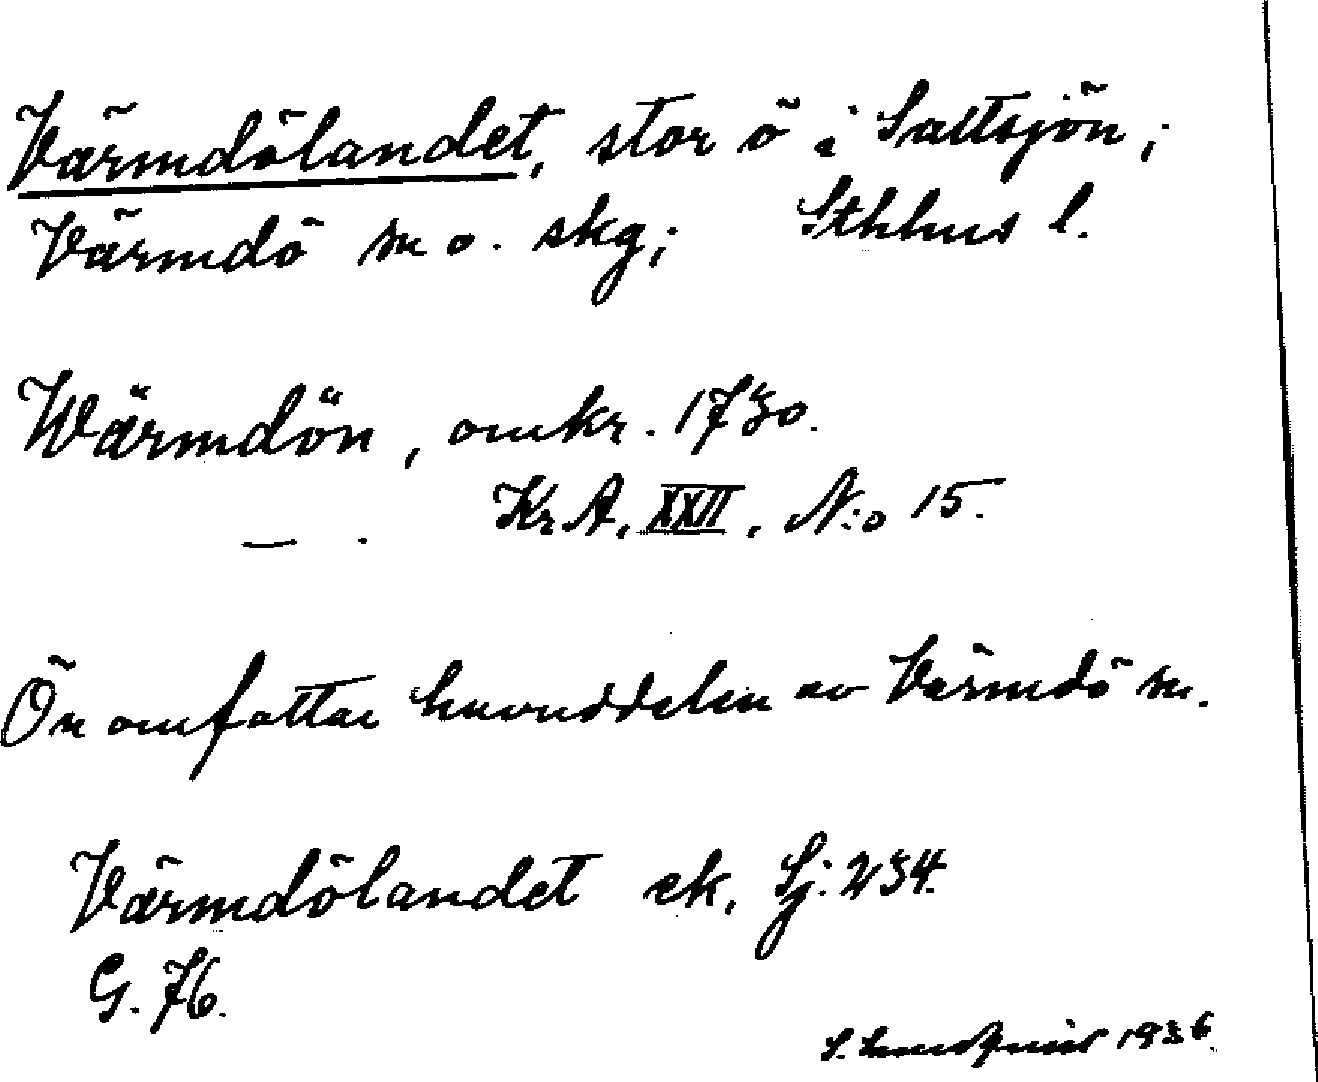 Värmdölandet, stor ö i Saltsjön;
Värmdö sn o. skg; Sthlms l.
Wärmdön, omkr. 1730.
— . KrA, XXII, N:o 15.
Ön omfattar huvuddelen av Värmdö sn.
Värmdölandet ek, Sj: 234.
G. 76.
S. 1936.